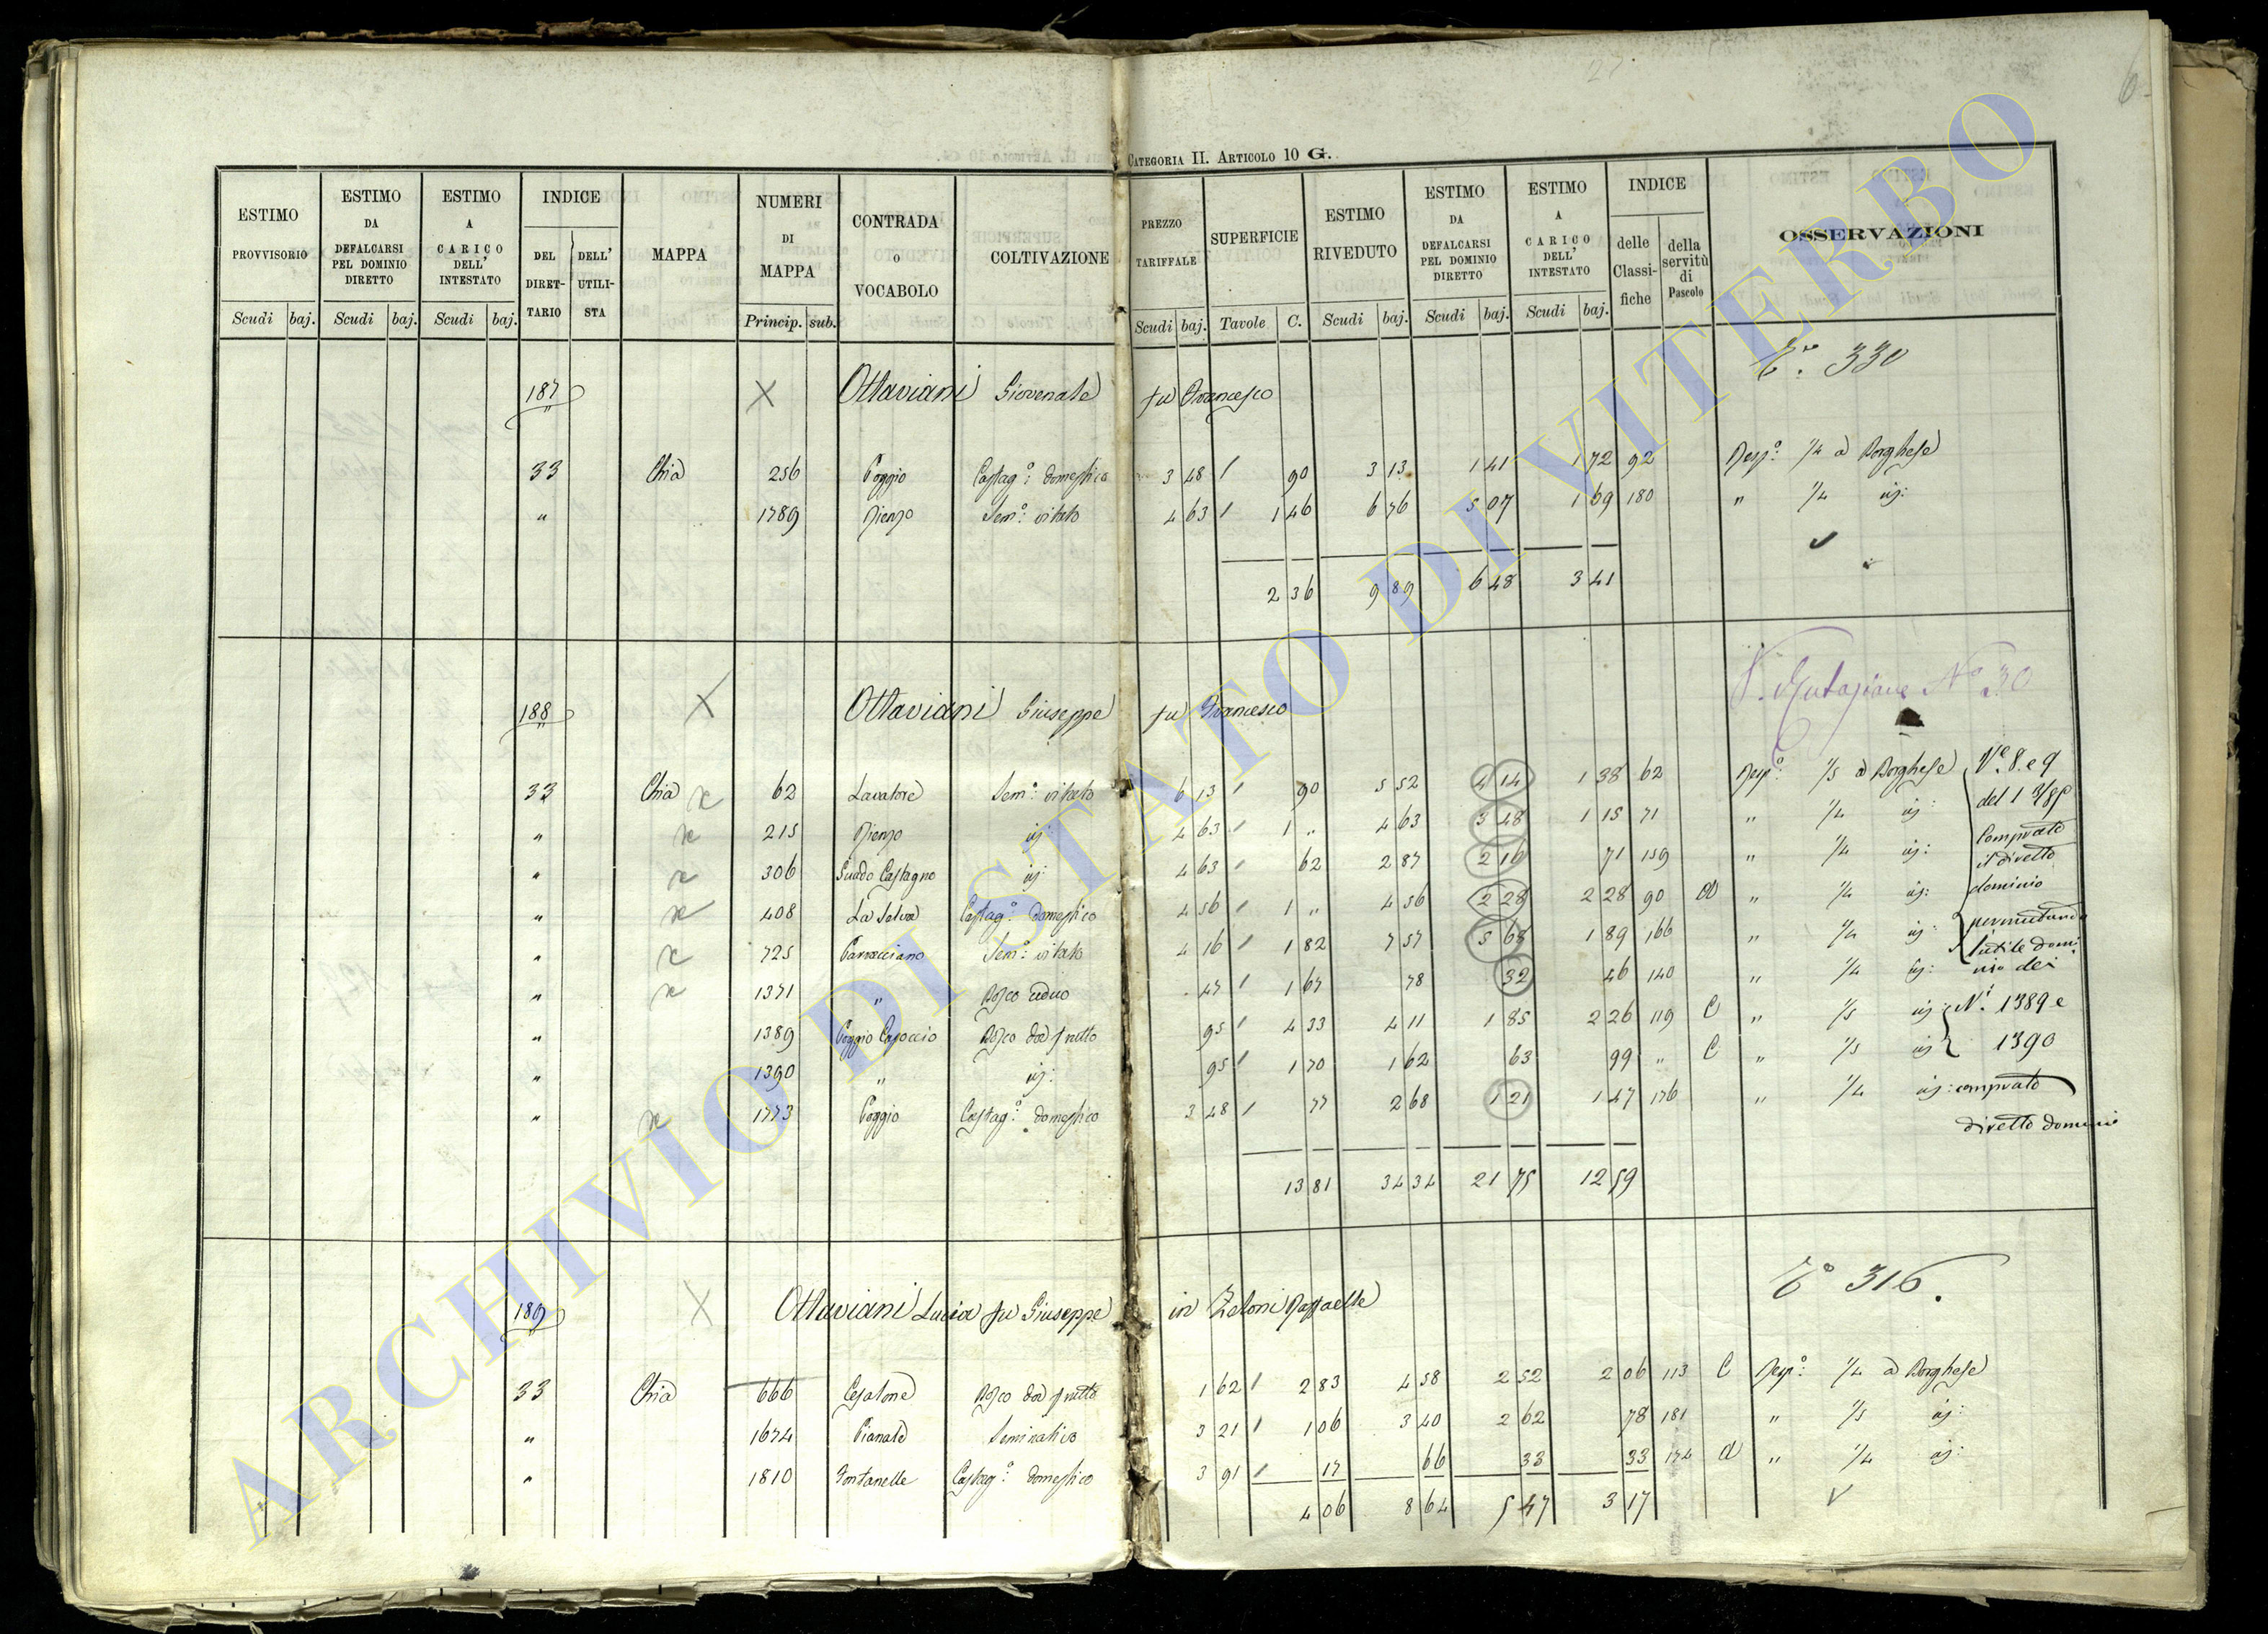 CATEGORIA II. ARTICOLO 10 G.
ESTIMO PROVVISORIO Scudi baj.
ESTIMO DA DEFALCARSI PEL DOMINIO DIRETTO Scudi baj.
ESTIMO A CARICO DELL' INTESTATO Scudi baj.
INDICE DEL DIRET-TARIO DELL' UTILI-STA
MAPPA
NUMERI DI MAPPA Princip. sub.
CONTRADA O VOCABOLO
COLTIVAZIONE
PREZZO TARIFFALE Scudi baj.
SUPERFICIE Tavole C.
ESTIMO RIVEDUTO Scudi baj.
ESTIMO DA DEFALCARSI PEL DOMINIO DIRETTO Scudi baj.
ESTIMO A CARICO DELL' INTESTATO Scudi baj.
INDICE delle Classi-fiche della servitù di Pascolo
OSSERVAZIONI
330
187 X Ottaviani Giovenale fu Francesco
33 Chia 256 Poggio Castag.o domestico 3 48 / 90 3 13 1 41 1 72 92 Resp.o 1/4 a Borghese
" 1789 Rienzo Sem.o vitato 4 63 / 1 46 6 76 5 07 1 69 180 " 1/4 id:
2 36 9 89 6 48 3 41
V. Mutazione No 30
188 X Ottaviani Giuseppe fu Francesco
33 Chia x 62 Lavatore Sem.o vitato 6 13 / 90 5 52 4 14 1 38 62 Resp.o 1/5 a Borghese Ni 8. e 9
" x 215 Rienzo id: 4 63 / 1 " 4 63 3 48 1 15 71 " 1/4 id: del
" x 306 Guado Castagno id: 4 63 / 62 2 87 2 16 71 159 " 1/4 id: Comprato il diretto
" x 408 La Selva Castag.o domestico 4 56 / 1 " 4 56 2 28 2 28 90 d " 1/4 id: dominio
" x 725 Sem.o vitato 4 16 / 1 82 7 57 5 68 1 89 166 " 1/4 id: permutando
" x 1371 " Bosco ceduo 47 / 1 67 78 32 46 140 " 1/4 id: l'utile domi-nio dei
" 1389 Poggio Bosco da frutto 95 / 4 33 4 11 1 85 2 26 119 C " 1/5 id: Ni 1389 e
" 1390 " id: 95 / 1 70 1 62 63 99 " C " 1/5 id: 1390
" x 1773 Poggio Castag.o domestico 3 48 / 77 2 68 1 21 1 47 176 " 1/4 id: comprato
diretto dominio
13 81 34 34 21 75 12 59
316.
189 X Ottaviani Lucia fu Giuseppe in Zeloni Raffaelle
33 Chia 666 Cesalone Bosco da frutto 1 62 / 2 83 4 58 2 52 2 06 113 C Resp.o 1/4 a Borghese
" 1674 Pianale Seminativo 3 21 / 1 06 3 40 2 62 78 181 " 1/5 id:
" 1810 Fontanelle Castag.o domestico 3 91 / 17 66 33 33 174 d " 1/4 id:
4 06 8 64 5 47 3 17
ARCHIVIO DI STATO DI VITERBO